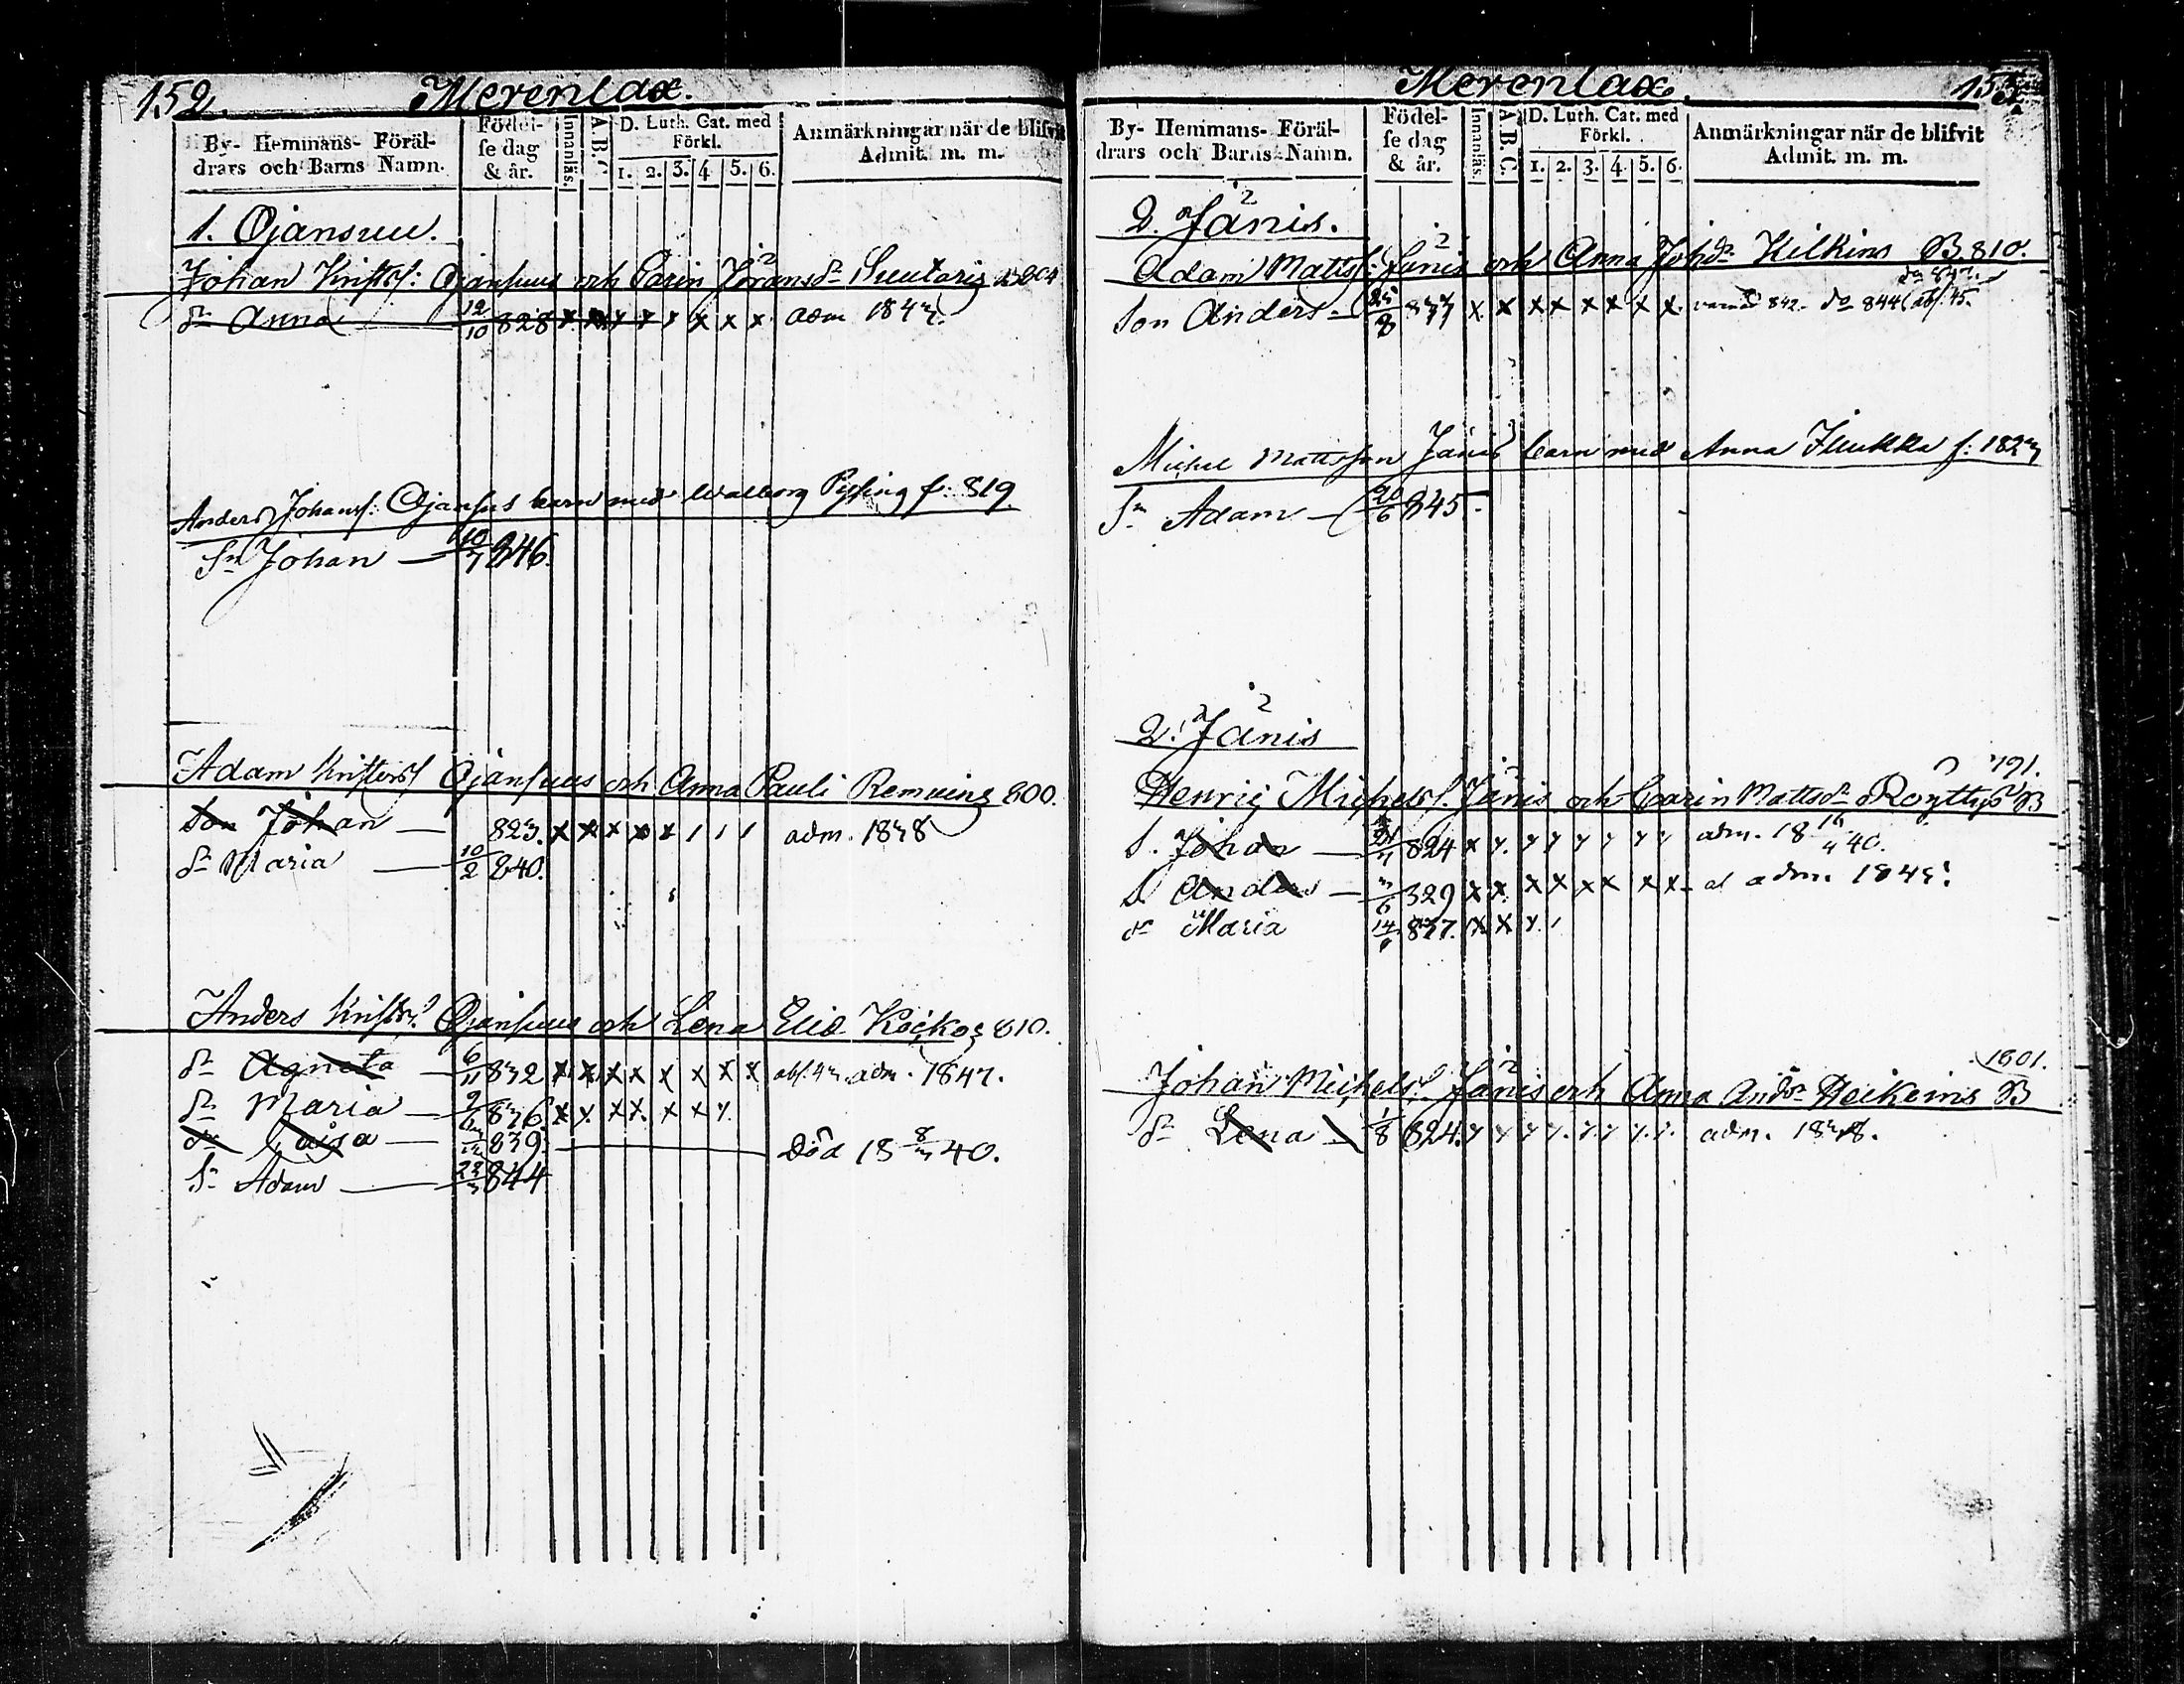 152.
Merenlax.
By- Hemmans- Föräl-
drars och Barns Namn.
Födel-
se dag
& år.
Innanläs.
A.B.C.
D. Luth. Cat. med
Förkl.
1. 2. 3. 4. 5. 6.
Anmärkningar när de blifvit
Admit. m. m.
1. Ojansuu.
Johan Kristers: Ojansuus och Carin Jöransdr
dr Anna 12/10 828 x x x x x x x x adm 1843.
Anders Johans: Ojansus barn med Walborg f: 819.
Sn Johan — 10/7 846.
Adam Kristers Ojansuus och Anna Pauli Remuing 800.
Son Johan — 823. x x x x x / / / adm. 1838
dr Maria — 10/2 840.
Anders Kristers Ojansuus och Lena Elia 810.
dr Agneta — 6/11 832 x x x x x x x x abs. 43 adm. 1847.
dr Maria — 836. x x x x x x x
dr Caisa — 839. död 18 8/3 40.
Sn Adam — 22/3 844
Merenlax.
By- Hemmans- Föräl-
drars och Barns Namn.
Födel-
se dag
& år.
Innanläs.
A.B.C.
D. Luth. Cat. med
Förkl.
1. 2. 3. 4. 5. 6.
Anmärkningar när de blifvit
Admit. m. m.
2. Jänis.
Adam Matts: Jänis och Anna Johdr Kilkins B. 810.
Son Anders — 25/8 833 x x x x x x x x 842. do 844 abs. 45.
Michel Mattsson Jänis barn med Anna f: 1823
Sn Adam — 20/6 845.
2. Jänis
791.
Henric Michels. Jänis och Carin Mattsdr B
S. Johan — 824 x x x x x x x x adm. 18 16/4 40.
S. Anders — 3/6 829 x x x x x x x x adm. 1845.
dr Maria 837. x x x /
1801.
Johan Michels: Jänis och Anna Andr Heikeins B
dr Lena — 1/8 824. x x x x x x x x adm. 1838.